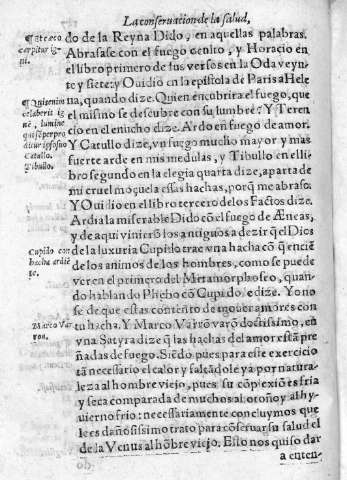 La conseruacion de la salud,
do de la Reyna Dido, en aquellas palabras.
Abrasase con el fuego cenito, y Horacio en
el libro primero de sus versos en la Oda veyn-
te y siete: y Ouidio en la epistola de Paris a Hele
na, quando dize. Quien encubrira el fuego, que
el mismo se descubre con su lumbre? Y Teren
cio en el enucho dize. Ardo en fuego de amor.
Y Catullo dize, vn fuego mucho mayor y mas
fuerte arde en mis medulas, y Tibullo en el li-
bro segundo en la elegia quarta dize, aparta de
mi cruel moçuela essas hachas, porq̃ me abraso:
Y Ouidio en el libro tercero de los Fastos dize.
Ardia la miserable Dido cõ el fuego de Æneas,
y de aqui vinierõ los antiguos a dezir q̃ el Dios
de la luxuria Cupido trae vna hacha cõ q̃ enciẽ
de los animos de los hombres, como se puede
ver en el primero del Metamorphoseo, quan-
do hablando Phebo cõn Cupido le dize. Yo no
se de que estas contento de mouer amores con
tu hacha. Y Marco Varrõ varõ doctissimo, en
vna Satyra dize q̃ las hachas del amor estã pre
ñadas de fuego. Siẽdo pues para este exercicio
tã necessario el calor y faltãdole ya por natura-
leza al hombre viejo, pues su cõplexiõ es fria
y seca comparada de muchos al otoño y al hy-
uierno frio: necessariamente concluymos que
le es dañosissimo trato para cõseruar su salud el
de la Venus al hõbre viejo. Esto nos quiso dar
a enten-
¶ Et cæco
carpitur ig-
ni.
¶ Quis enim
celaberit ig
nẽ, lumine
qui semper pro
ditur ipse suo
Catullo.
Tibullo.
Cupido con
hacha ardiẽ
te.
Marco Var
ron.